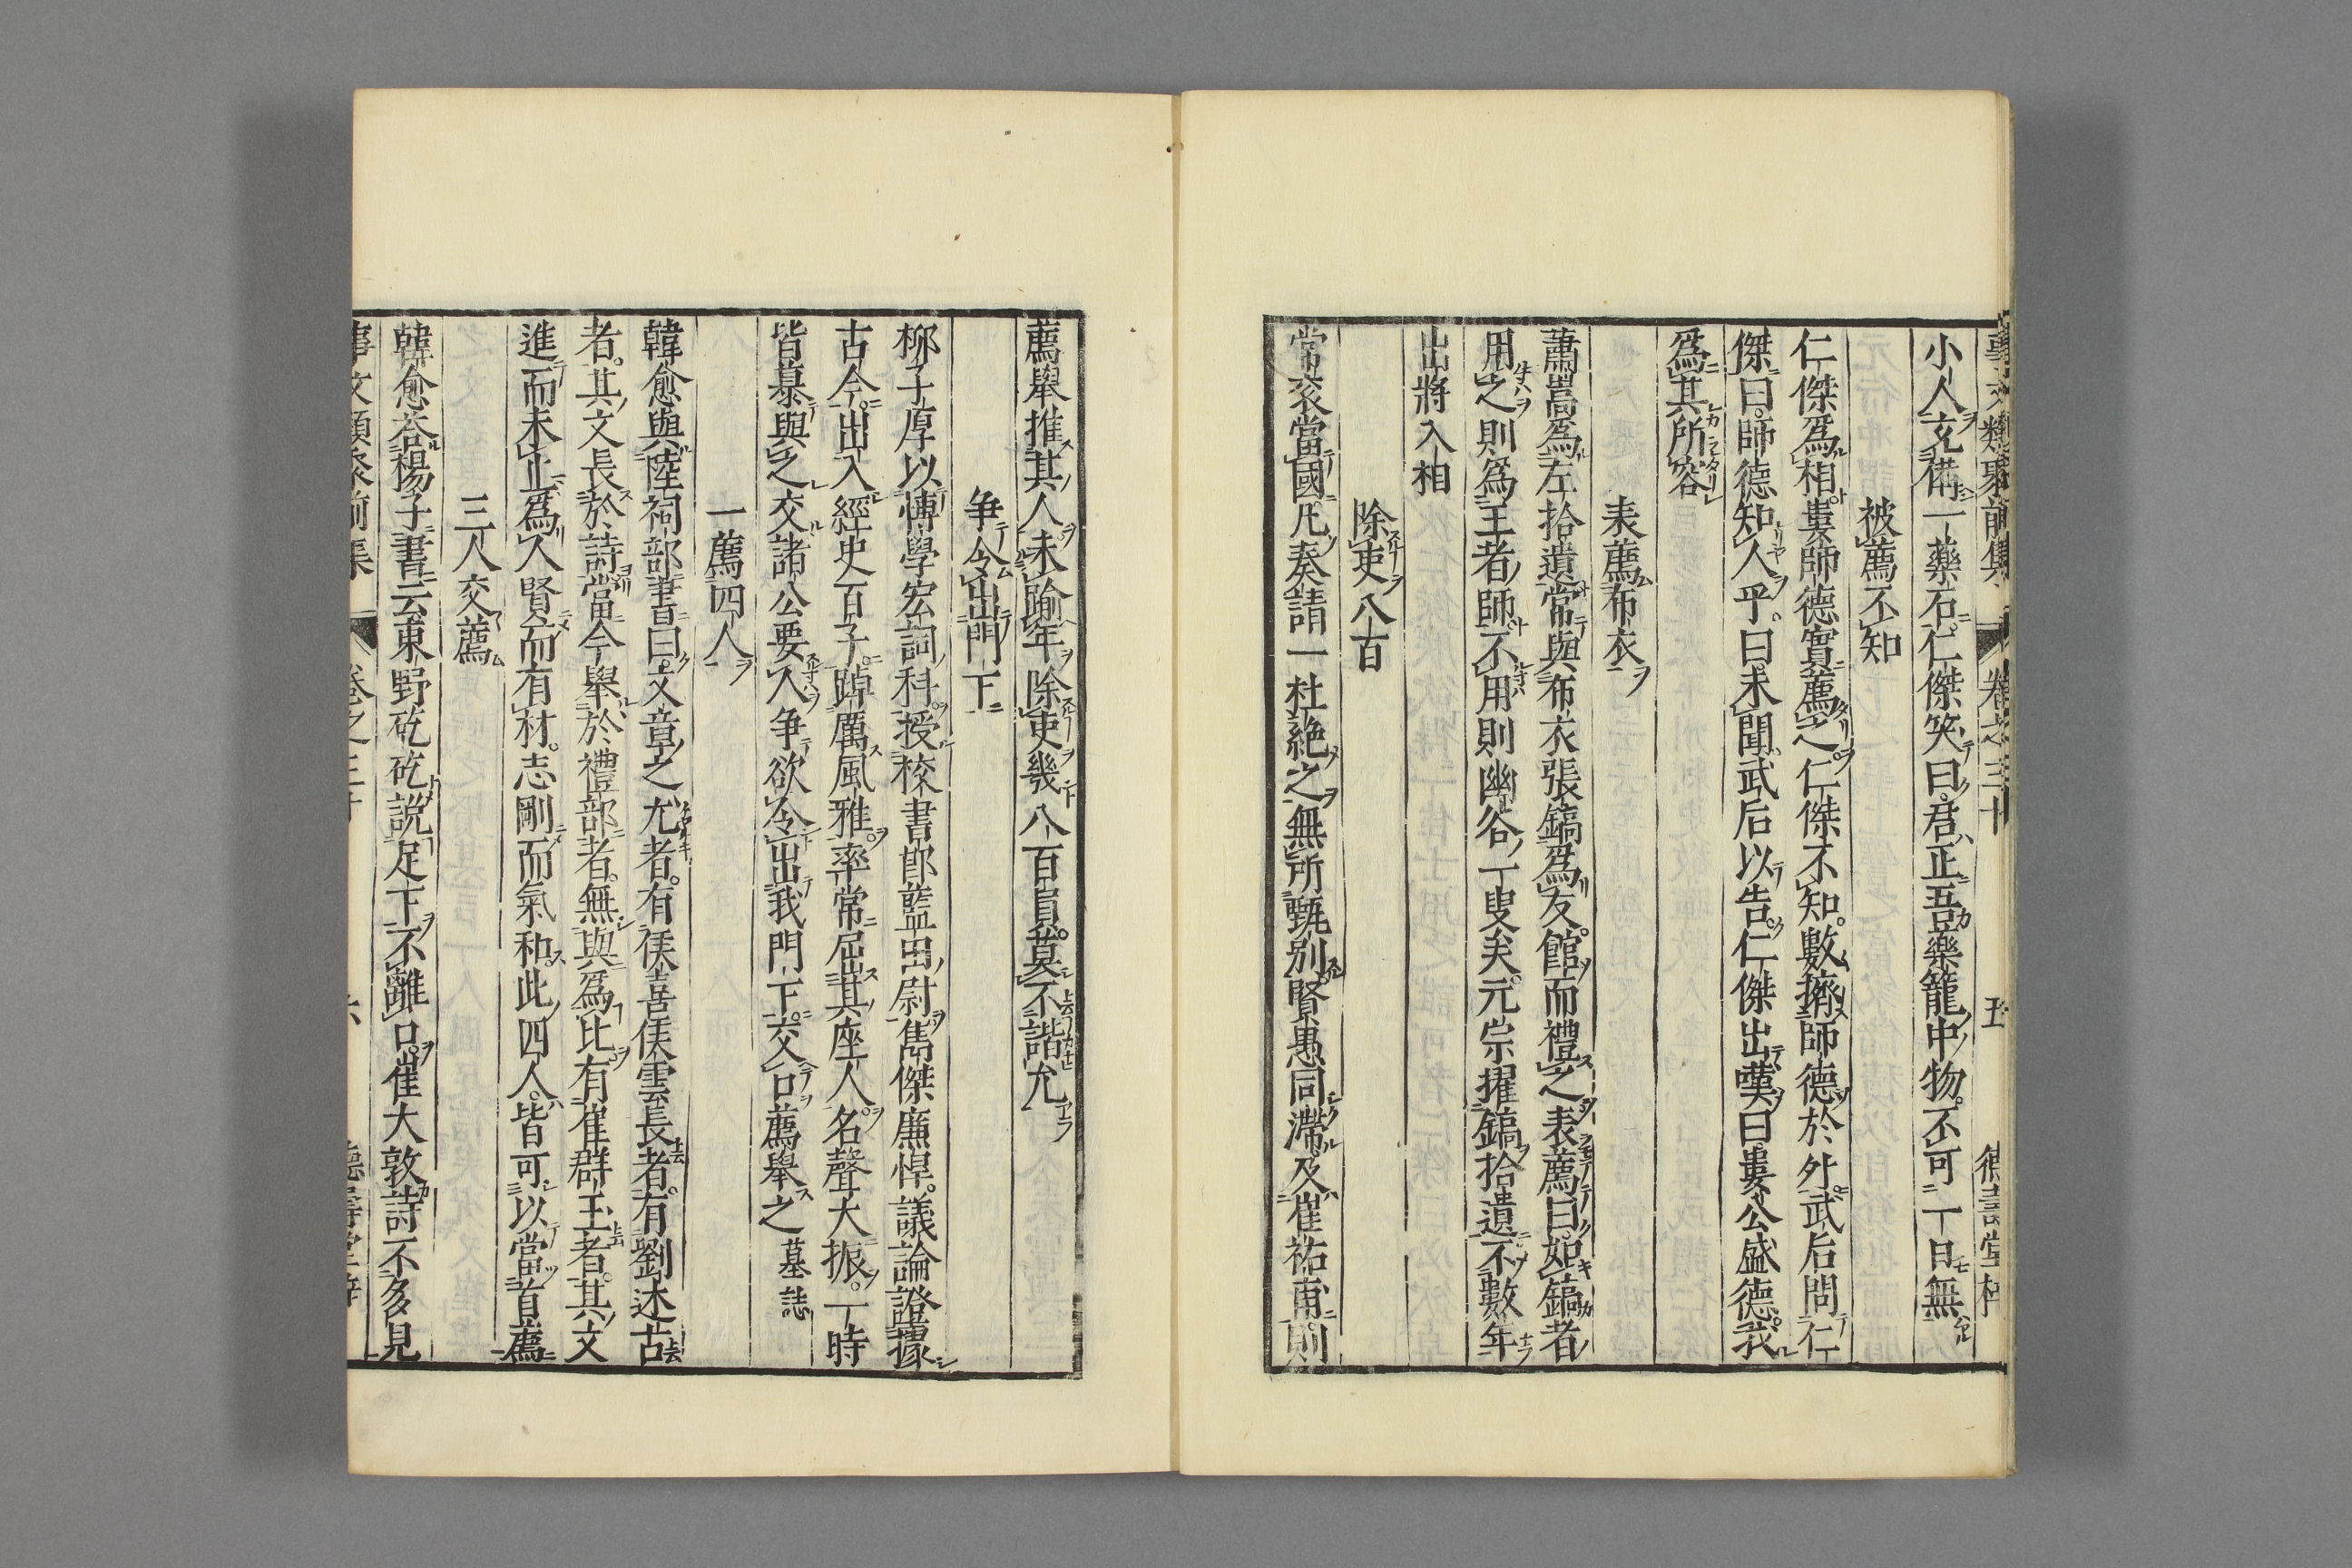 事文類聚前集 卷之三十 五 德壽堂梓
小人充備一藥石仁傑笑曰君正吾藥籠中物不可一日無
被薦不知
仁傑爲相婁師德實薦之仁傑不知數擠師德於外武后問仁
傑曰師德知人乎曰未聞武后以告仁傑出嘆曰婁公盛德我
爲其所容
表薦布衣
蕭嵩爲左拾遺常與布衣張鎬爲友館而禮之表薦曰如鎬者
用之則爲王者師不用則幽谷一叟矣元宗擢鎬拾遺不數年
出將入相
除吏八百
常衮當國凡奏請一杜絶之無所甄别賢愚同滯及崔祐甫則
薦舉推其人未踰年除吏幾八百員莫不諧允
争令出門下
柳子厚以博學宏詞科授校書郎藍田尉雋傑廉悍議論證據
古今出入經史百子踔厲風雅率常屈其座人名聲大振一時
皆慕與之交諸公要人争欲令出我門下交口薦舉之 墓誌
一薦四人
韓愈與陸祠部書曰文章之尤者有侯喜侯雲長者有劉述古
者其文長於詩當今舉於禮部者無與爲比有崔群玉者其文
進而未止爲人賢而有材志剛而氣和此四人皆可以當首薦
三人交薦
韓愈荅楊子書云東野矻矻説足下不離口崔大敦詩不多見
事文類聚前集 卷之三十 六 德壽堂梓